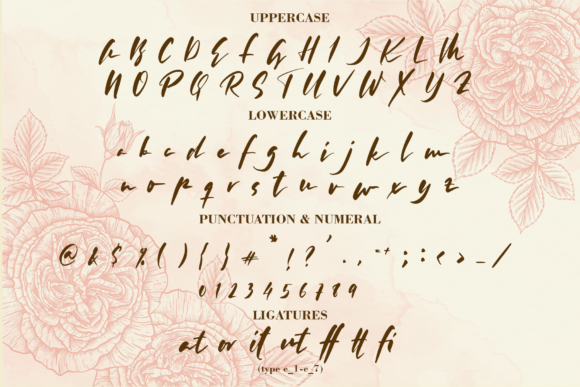 UPPERCASE
A B C D E F G H I J K L M
N O P Q R S T U V W X Y Z
LOWERCASE
a b c d e f g h i j k l m
n o p q r s t u v w x y z
PUNCTUATION & NUMERAL
@ & $ % ( ) { } # * ! ? ' . , " " ; : < > _ /
0 1 2 3 4 5 6 7 8 9
LIGATURES
at or it ut ff tt fi
(type e_1-e_7)